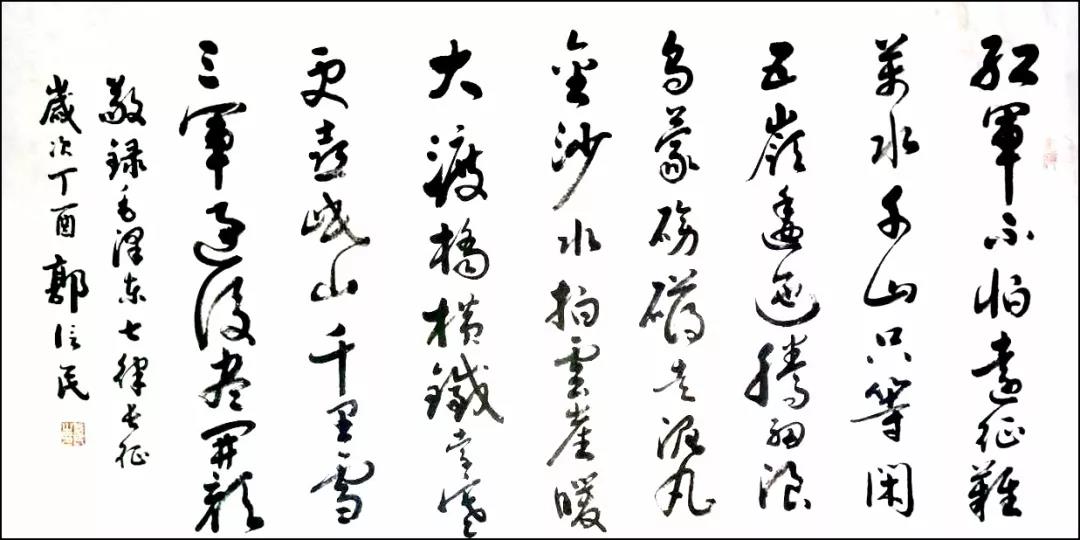 紅軍不怕遠征難
萬水千山只等閑
五嶺逶迤騰細浪
烏蒙磅礴走泥丸
金沙水拍雲崖暖
大渡橋橫鐵索寒
更喜岷山千里雪
三軍過後盡開顏
敬録毛澤東七律長征
歲次丁酉郭信民